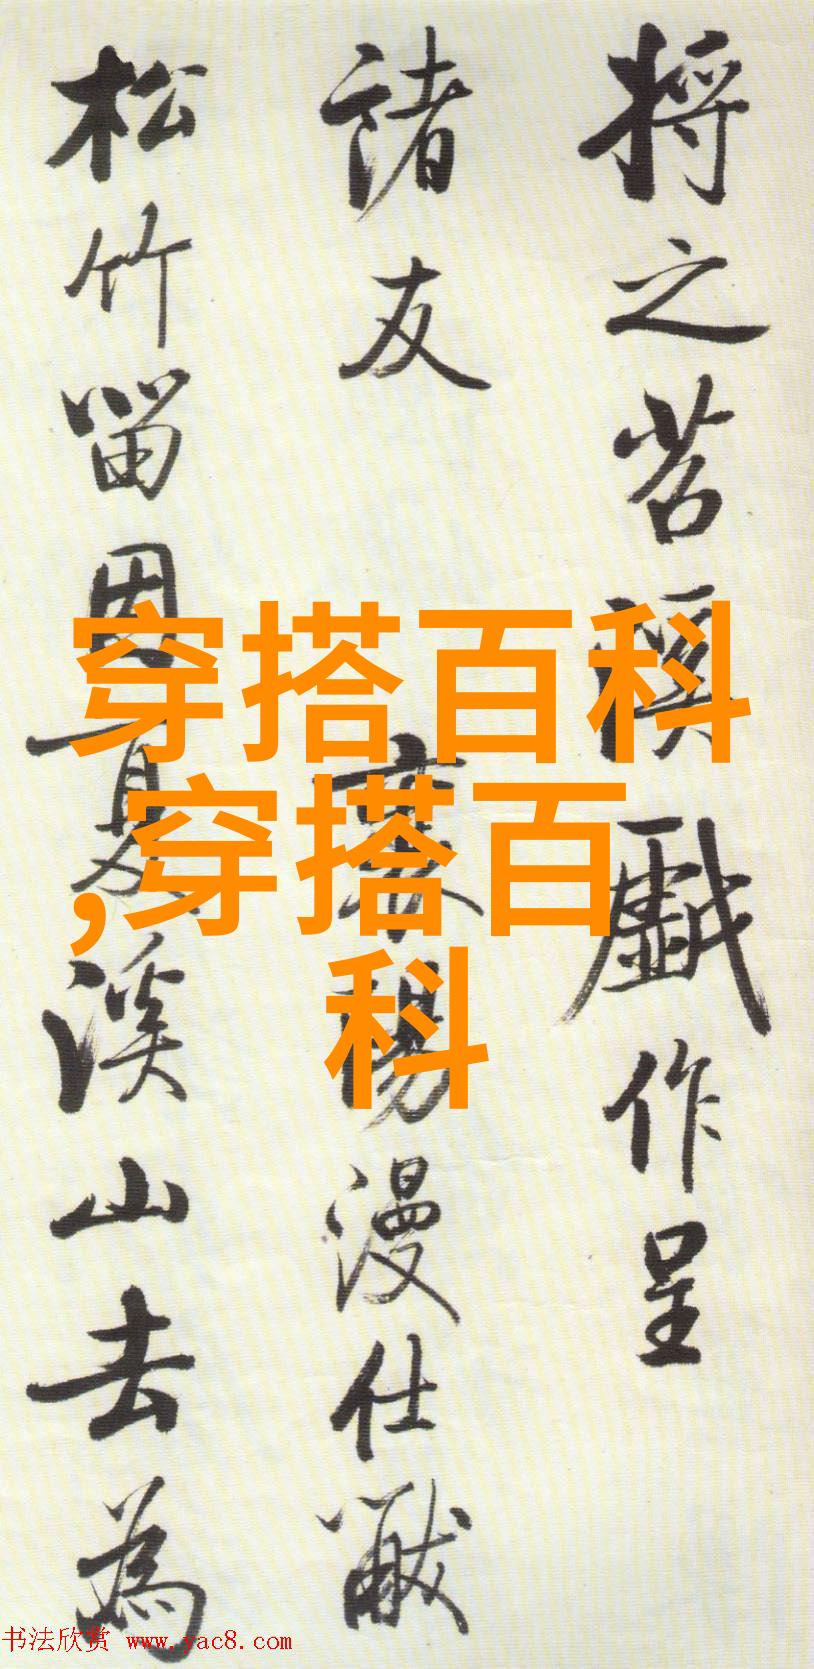 將之苕溪戯作呈
諸友
襄陽漫仕黻
松竹留因夏溪山去為
穿搭百科
,穿搭百
科
书法欣赏 www.yac8.com